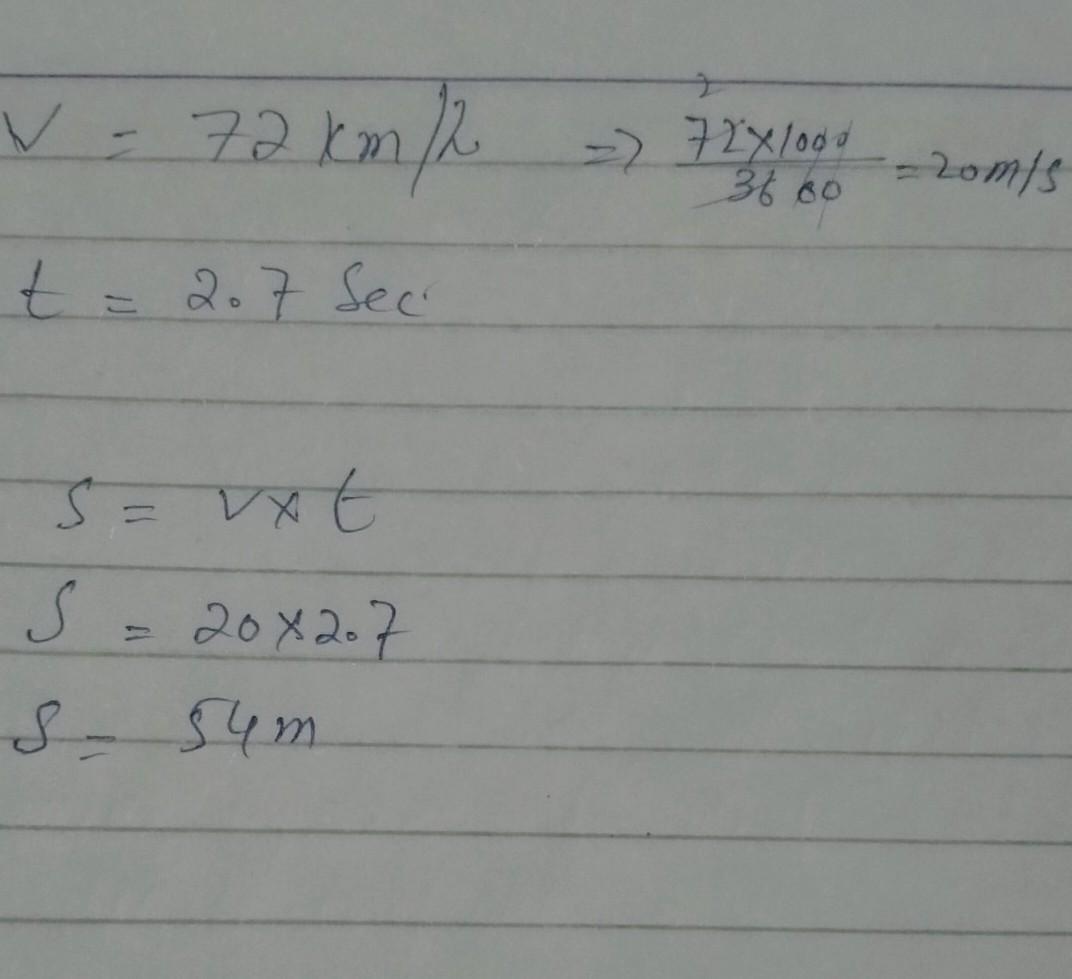 V = 72 km/h => 72×1000/3600 = 20 m/s
t = 2.7 Sec
S = v×t
S = 20×2.7
S = 54m